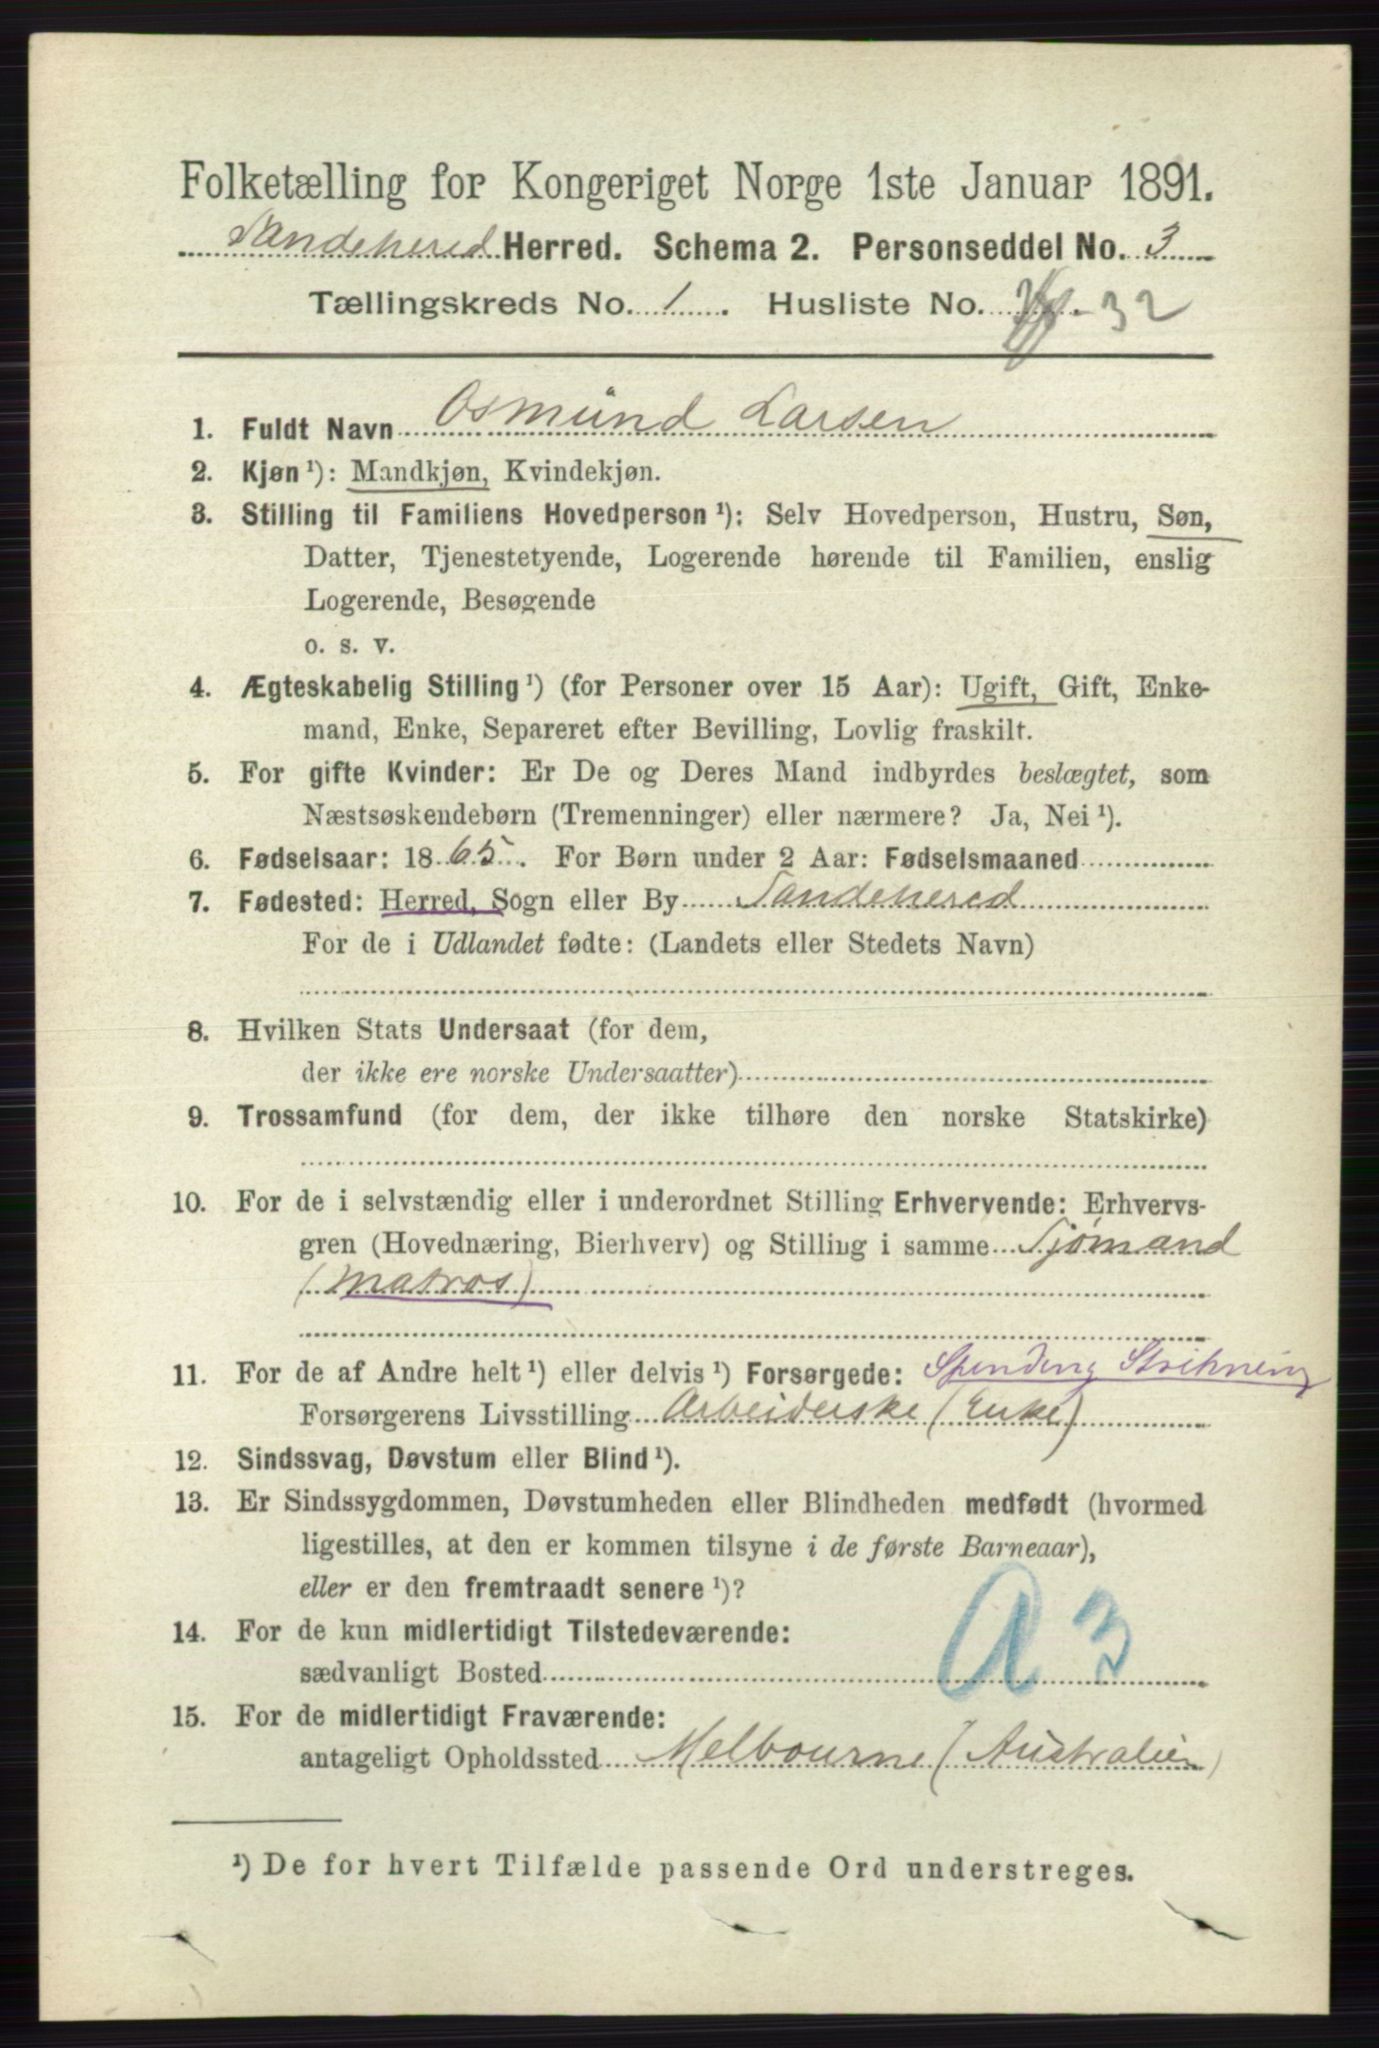 Folketælling for Kongeriget Norge 1ste Januar 1891.
Sandehered Herred. Schema 2. Personseddel No. 3
Tællingskreds No. 1. Husliste No. 32
1. Fuldt Navn Osmund Larsen
2. Kjøn¹): Mandkjøn, Kvindekjøn.
3. Stilling til Familiens Hovedperson¹): Selv Hovedperson, Hustru, Søn,
Datter, Tjenestetyende, Logerende hørende til Familien, enslig
Logerende, Besøgende
o. s. v.
4. Ægteskabelig Stilling¹) (for Personer over 15 Aar): Ugift, Gift, Enke-
mand, Enke, Separeret efter Bevilling, Lovlig fraskilt.
5. For gifte Kvinder: Er De og Deres Mand indbyrdes beslægtet, som
Næstsøskendebørn (Tremenninger) eller nærmere? Ja, Nei¹).
6. Fødselsaar: 1865. For Børn under 2 Aar: Fødselsmaaned
7. Fødested: Herred, Sogn eller By Sandehered
For de i Udlandet fødte: (Landets eller Stedets Navn)
8. Hvilken Stats Undersaat (for dem,
der ikke ere norske Undersaatter)
9. Trossamfund (for dem, der ikke tilhøre den norske Statskirke)
10. For de i selvstændig eller i underordnet Stilling Erhvervende: Erhvervs-
gren (Hovednæring, Bierhverv) og Stilling i samme Sjømand
(Matros)
11. For de af Andre helt¹) eller delvis¹) Forsørgede:
Forsørgerens Livsstilling Arbeiderske (Enke)
12. Sindssvag, Døvstum eller Blind¹).
13. Er Sindssygdommen, Døvstumheden eller Blindheden medfødt (hvormed
ligestilles, at den er kommen tilsyne i de første Barneaar),
eller er den fremtraadt senere¹)?
14. For de kun midlertidigt Tilstedeværende:
sædvanligt Bosted
A 3
15. For de midlertidigt Fraværende:
antageligt Opholdssted Melbourne (Australien)
¹) De for hvert Tilfælde passende Ord understreges.